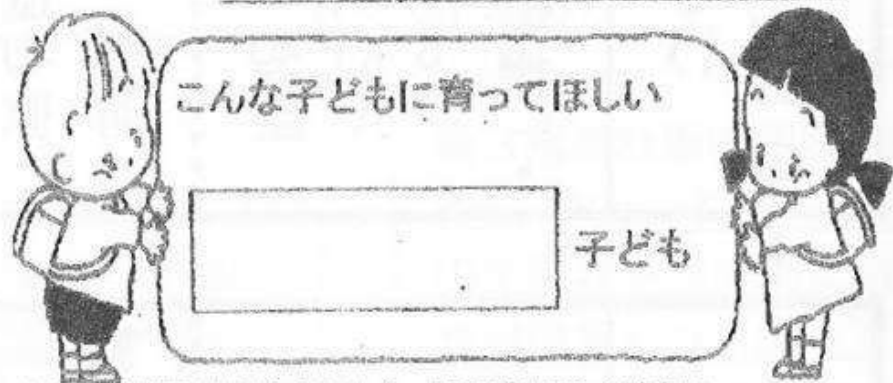 こんな子どもに育ってほしい
子ども